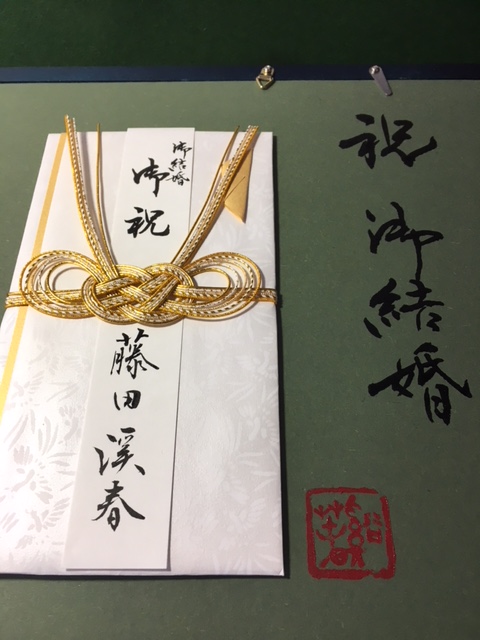 祝 御結婚
御結婚
御祝
藤田渓春